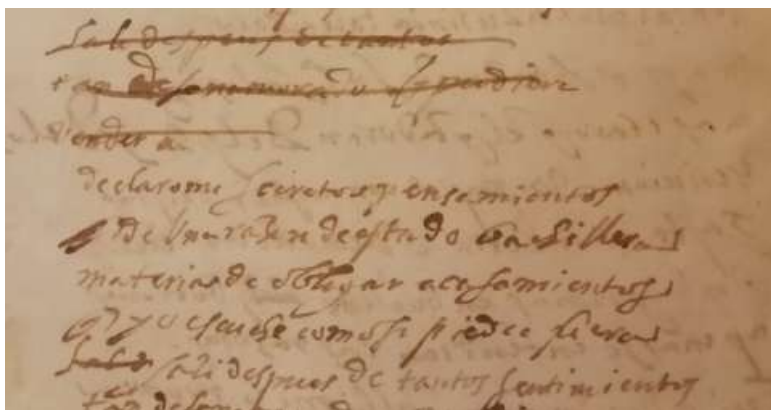 sali despues de tantos
tan desenamorado
vender a
declarome secretos pensamientos
de una razon de estado bachillera
materias de obligar a casamientos
q yo escuche como si piedra fuera
sali despues de tantos sentimientos
tan